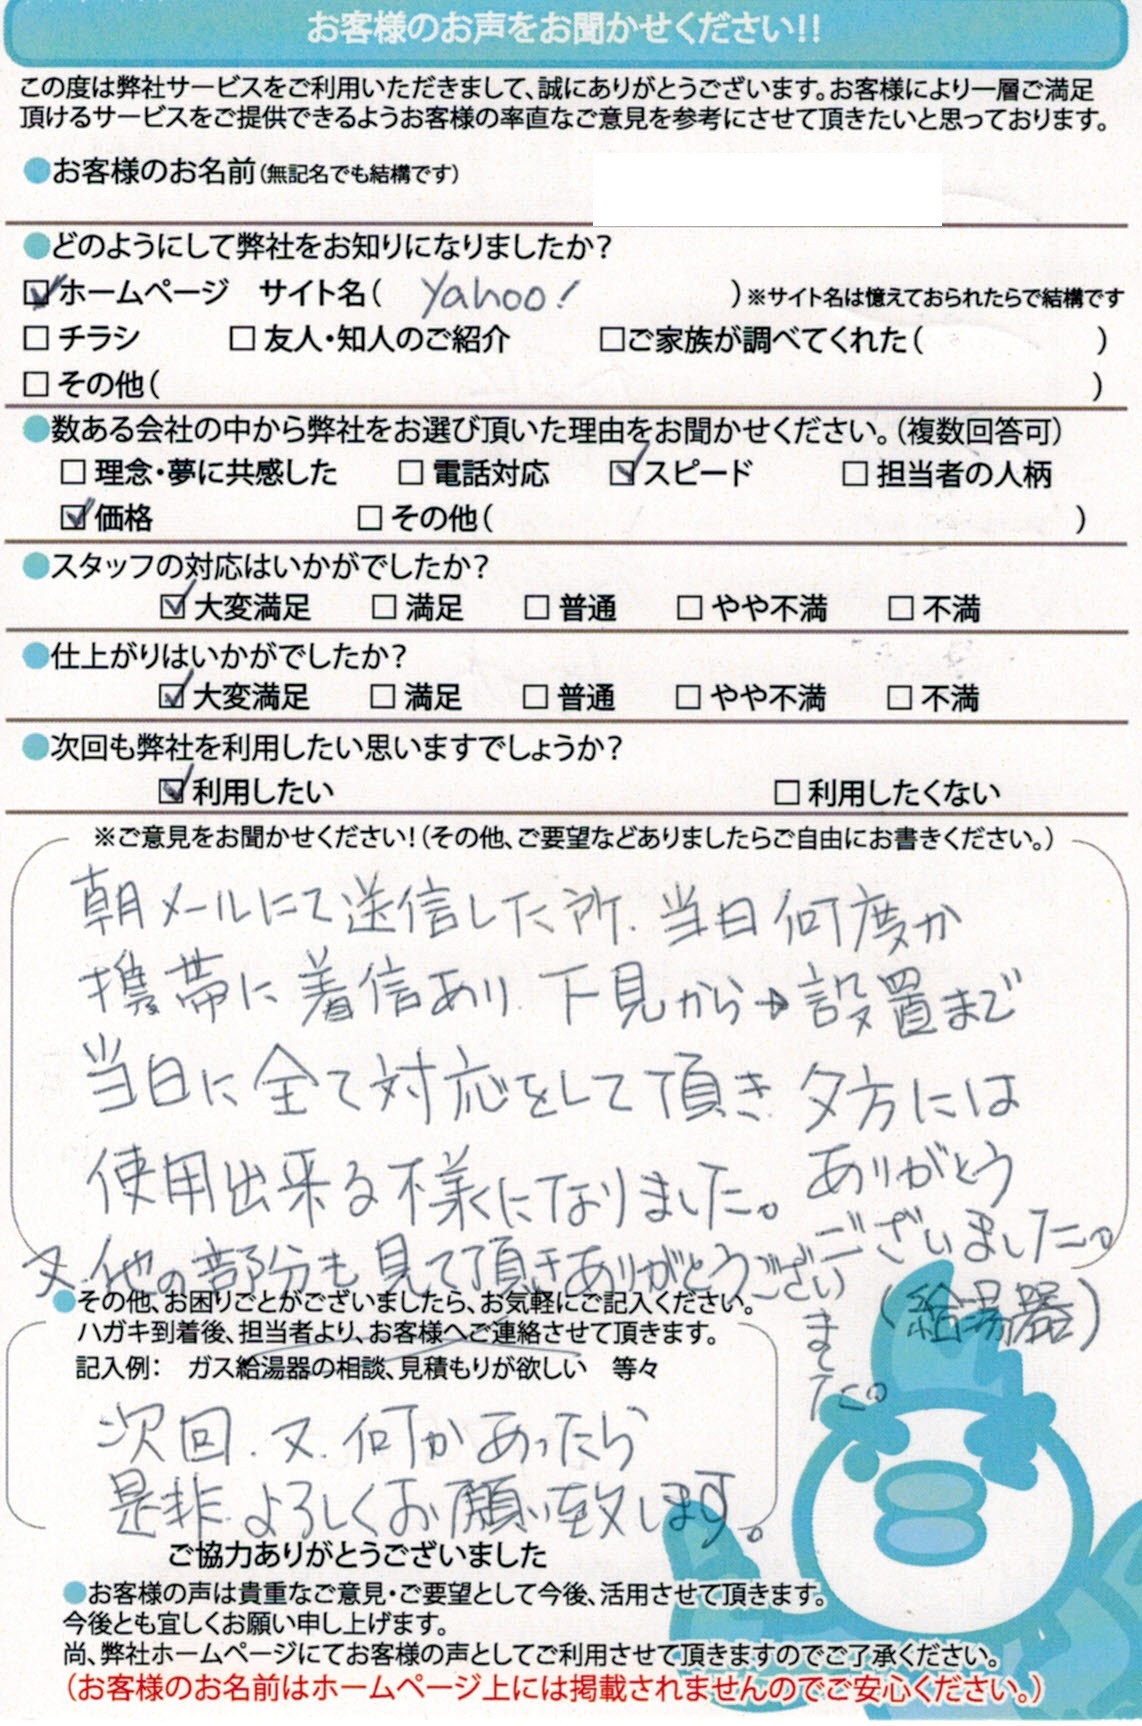 お客様のお声をお聞かせください!!
この度は弊社サービスをご利用いただきまして、誠にありがとうございます。お客様により一層ご満足
頂けるサービスをご提供できるようお客様の率直なご意見を参考にさせて頂きたいと思っております。
●お客様のお名前(無記名でも結構です)
●どのようにして弊社をお知りになりましたか?
☑ホームページ サイト名( Yahoo! )※サイト名は憶えておられたらで結構です
□ チラシ □ 友人・知人のご紹介 □ご家族が調べてくれた( )
□ その他( )
●数ある会社の中から弊社をお選び頂いた理由をお聞かせください。(複数回答可)
□ 理念・夢に共感した □ 電話対応 ☑スピード □ 担当者の人柄
☑価格 □ その他( )
●スタッフの対応はいかがでしたか?
☑大変満足 □ 満足 □ 普通 □ やや不満 □ 不満
●仕上がりはいかがでしたか?
☑大変満足 □ 満足 □ 普通 □ やや不満 □ 不満
●次回も弊社を利用したい思いますでしょうか?
☑利用したい □ 利用したくない
※ご意見をお聞かせください!(その他、ご要望などありましたらご自由にお書きください。)
朝メールにて送信した所、当日何度か
携帯に着信あり、下見から→設置まで
当日に全て対応をして頂き、夕方には
使用出来る様になりました。ありがとう
ございました。
(給湯器)
又、他の部分も見て頂きありがとうござい
ました。
●その他、お困りごとがございましたら、お気軽にご記入ください。
ハガキ到着後、担当者より、お客様へご連絡させて頂きます。
記入例: ガス給湯器の相談、見積もりが欲しい 等々
次回、又、何かあったら
是非、よろしくお願い致します。
ご協力ありがとうございました
●お客様の声は貴重なご意見・ご要望として今後、活用させて頂きます。
今後とも宜しくお願い申し上げます。
尚、弊社ホームページにてお客様の声としてご利用させて頂きますのでご了承ください。
(お客様のお名前はホームページ上には掲載されませんのでご安心ください。)